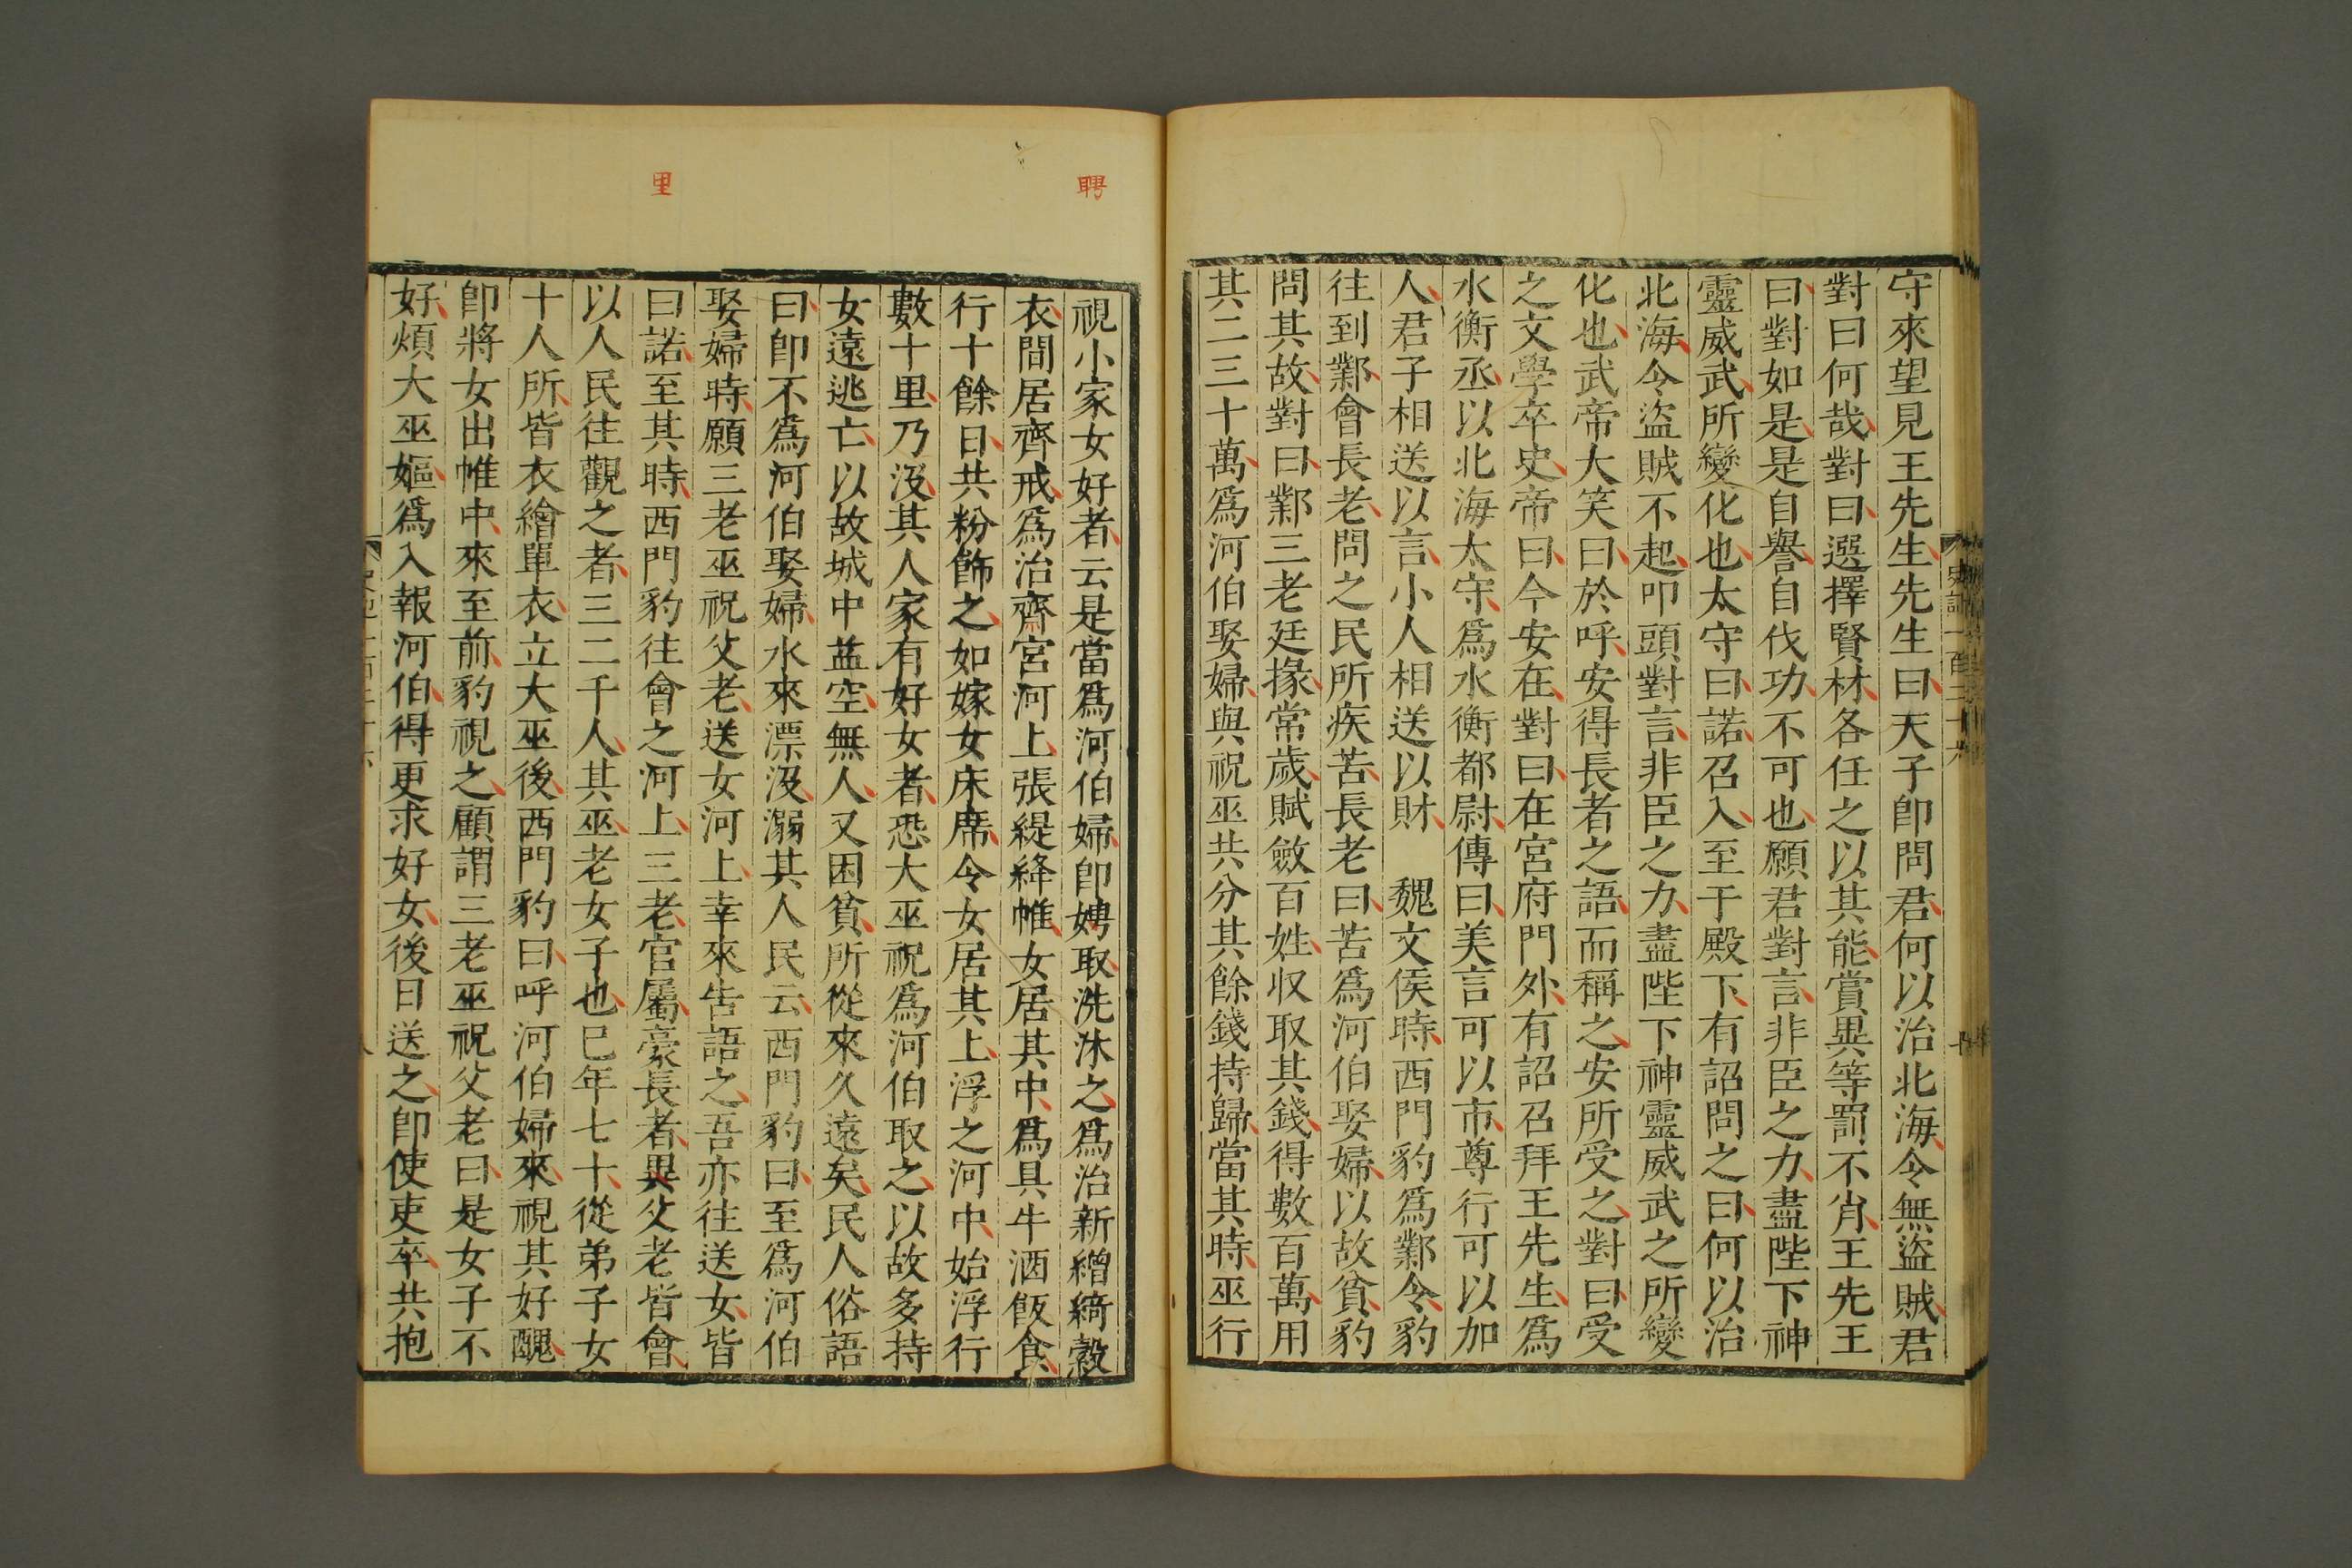 守來望見王先生先生曰天子卽問君何以治北海令無盜賊君
對曰何哉對曰選擇賢材各任之以其能賞異等罰不肖王先王
曰對如是是自譽自伐功不可也願君對言非臣之力盡陛下神
靈威武所變化也太守曰諾召入至于殿下有詔問之曰何以治
北海令盜賊不起叩頭對言非臣之力盡陛下神靈威武之所變
化也武帝大笑曰於呼安得長者之語而稱之安所受之對曰受
之文學卒史帝曰今安在對曰在宮府門外有詔召拜王先生爲
水衡丞以北海太守爲水衡都尉傳曰美言可以市尊行可以加
人君子相送以言小人相送以財　魏文侯時西門豹爲鄴令豹
往到鄴會長老問之民所疾苦長老曰苦爲河伯娶婦以故貧豹
問其故對曰鄴三老廷掾常歲賦斂百姓收取其錢得數百萬用
其二三十萬爲河伯娶婦與祝巫共分其餘錢持歸當其時巫行
史記一百二十六
聘
里
視小家女好者云是當爲河伯婦卽娉取洗沐之爲治新繒綺縠
衣閒居齊戒爲治齋宮河上張緹絳帷女居其中爲具牛酒飯食
行十餘日共粉飾之如嫁女床席令女居其上浮之河中始浮行
數十里乃沒其人家有好女者恐大巫祝爲河伯取之以故多持
女遠逃亡以故城中益空無人又困貧所從來久遠矣民人俗語
曰卽不爲河伯娶婦水來漂沒溺其人民云西門豹曰至爲河伯
娶婦時願三老巫祝父老送女河上幸來告語之吾亦往送女皆
曰諾至其時西門豹往會之河上三老官屬豪長者異父老皆會
以人民往觀之者三二千人其巫老女子也巳年七十從弟子女
十人所皆衣繒單衣立大巫後西門豹曰呼河伯婦來視其好醜
卽將女出帷中來至前豹視之顧謂三老巫祝父老曰是女子不
好煩大巫嫗爲入報河伯得更求好女後日送之卽使吏卒共抱